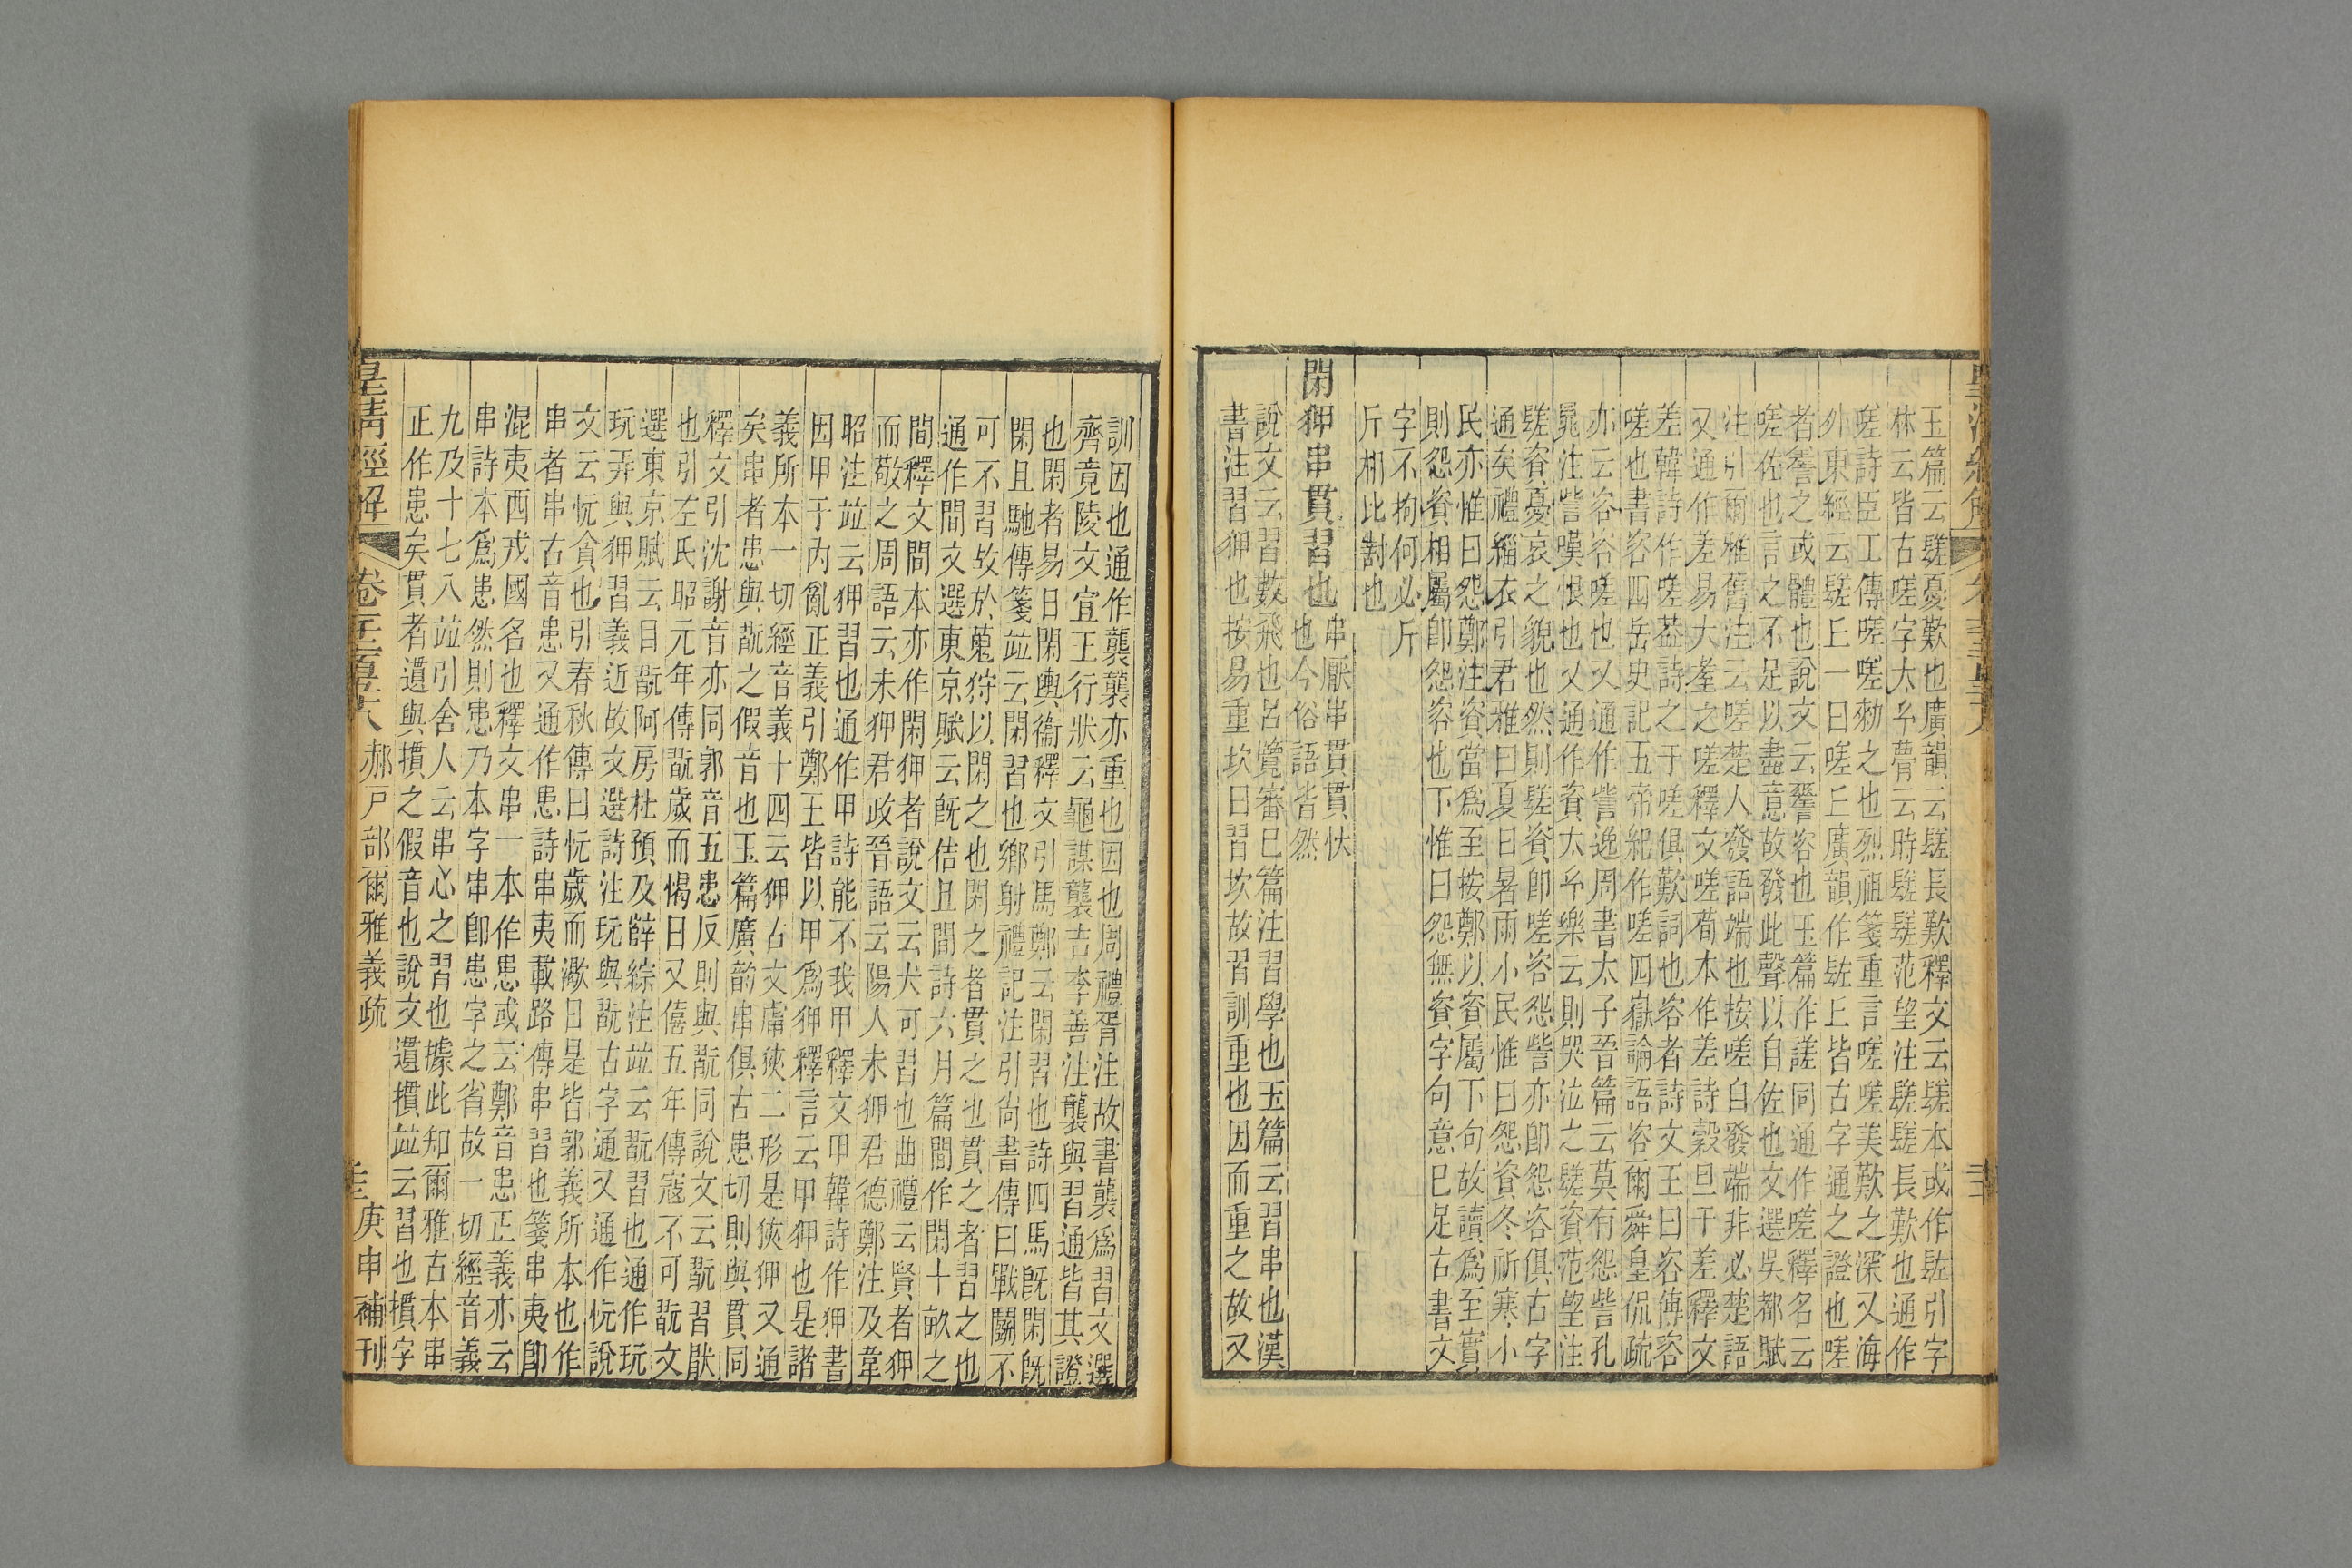 玉篇云䰈憂歎也廣韻云䰈長歎釋文云䰈本或作䰈引字
林云皆古嗟字太玄瞢云時䰈䰈范望注䰈䰈長歎也通作
嗟詩臣工傳嗟嗟勑之也烈祖箋重言嗟嗟美歎之深又海
外東經云䰈丘一曰嗟丘廣韻作䰈丘皆古字通之證也嗟
者䜺之或體也說文云䜺咨也玉篇作䜺同通作嗟釋名云
嗟佐也言之不足以盡意故發此聲以自佐也文選吳都賦
注引爾雅舊注云嗟楚人發語端也按嗟自發端非必楚語
又通作差易大耋之嗟釋文嗟荀本作差詩穀旦于差釋文
差韓詩作嗟葢詩之于嗟俱歎詞也咨者詩文王曰咨傳咨
嗟也書咨四岳史記五帝紀作嗟四嶽論語咨爾舜皇侃疏
亦云咨咨嗟也又通作訾逸周書太子晉篇云莫有怨訾孔
晁注訾嘆恨也又通作資太玄樂云則哭泣之䰈資范望注
䰈資憂哀之貌也然則䰈資卽嗟咨怨訾亦卽怨咨俱古字
通矣禮緇衣引君雅曰夏日暑雨小民惟曰怨資冬祈寒小
民亦惟曰怨鄭注資當爲至按鄭以資屬下句故讀爲至實
則怨資相屬卽怨咨也下惟曰怨無資字句意已足古書文
字不拘何必斤
斤相比對也
閑狎串貫習也
串厭串貫貫忕
也今俗語皆然
說文云習數飛也呂覽審己篇注習學也玉篇云習串也漢
書注習狎也按易重坎曰習坎故習訓重也因而重之故又
訓因也通作襲襲亦重也因也周禮胥注故書襲爲習文選
齊竟陵文宣王行狀云龜謀襲吉李善注襲與習通皆其證
也閑者易曰閑輿衞釋文引馬鄭云閑習也詩四馬旣閑旣
閑且馳傳箋竝云閑習也鄉射禮記注引尙書傳曰戰鬭不
可不習故於蒐狩以閑之也閑之者貫之也貫之者習之也
通作閒文選東京賦云旣佶且閒詩六月篇閒作閑十畝之
閒釋文閒本亦作閑狎者說文云犬可習也曲禮云賢者狎
而敬之周語云未狎君政晉語云陽人未狎君德鄭注及韋
昭注竝云狎習也通作甲詩能不我甲釋文甲韓詩作狎書
因甲于內亂正義引鄭王皆以甲爲狎釋言云甲狎也是諸
義所本一切經音義十四云狎古文庘狹二形是狹狎又通
矣串者患與翫之假音也玉篇廣韵串俱古患切則與貫同
釋文引沈謝音亦同郭音五患反則與翫同說文云翫習猒
也引左氏昭元年傳翫歲而愒日又僖五年傳寇不可翫文
選東京賦云目翫阿房杜預及薛綜注竝云翫習也通作玩
玩弄與狎習義近故文選詩注玩與翫古字通又通作忨說
文云忨貪也引春秋傳曰忨歲而㵣日是皆郭義所本也作
串者串古音患又通作患詩串夷載路傳串習也箋串夷卽
混夷西戎國名也釋文串一本作患或云鄭音患正義亦云
串詩本爲患然則患乃本字串卽患字之省故一切經音義
九及十七八竝引舍人云串心之習也據此知爾雅古本串
正作患矣貫者遺與摜之假音也說文遺摜竝云習也摜字
皇淸經解 卷千二百五十八 郝戸部爾雅義疏 庚申補刊